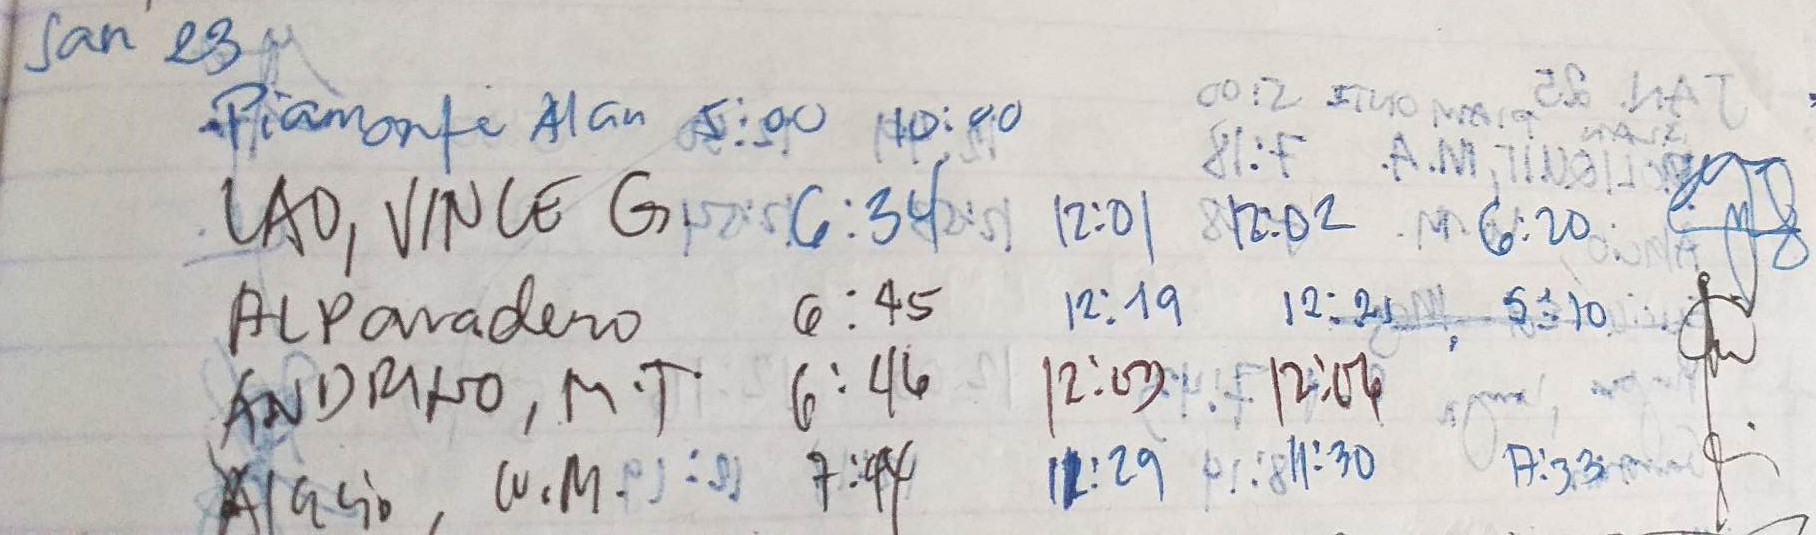 Jan 23
Piamonte Alan 5:00 10:00
LAO, VINCE G. 6:34 12:01 12:02 6:20
ALParadero 6:45 12:19 12:21 5:10
ANDRINO, M.T. 6:46 12:03 12:04
Alacio, W.M. 7:44 11:29 11:30 17:33